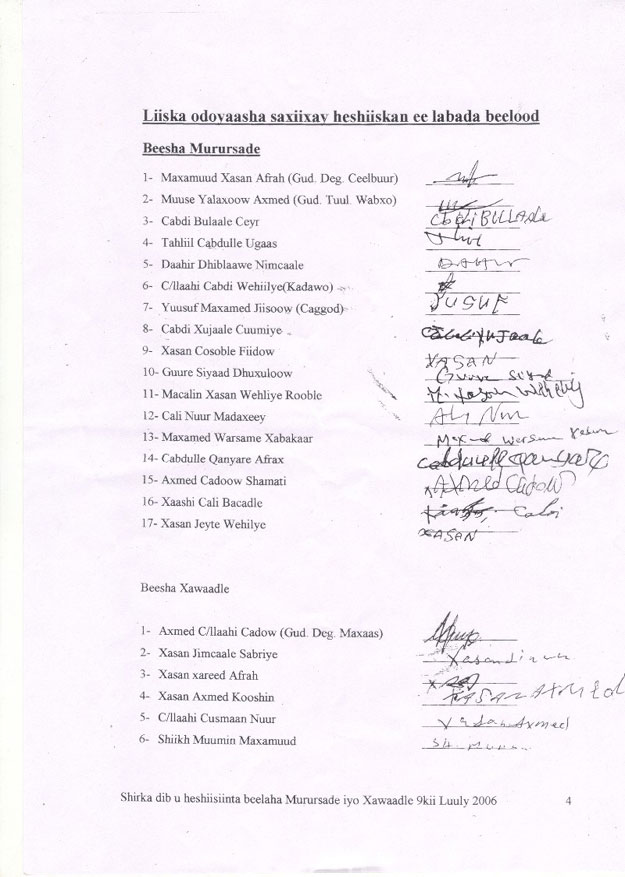 Liiska odoyaasha saxiixay heshiiskan ee labada beelood
Beesha Murursade
1- Maxamuud Xasan Afrah (Gud. Deg. Ceelbuur)
2- Muuse Yalaxoow Axmed (Gud. Tuul. Wabxo)
3- Cabdi Bulaale Ceyr CbdiBULLAale
4- Tahliil Cabdulle Ugaas
5- Daahir Dhiblaawe Nimcaale DAHIR
6- C/llaahi Cabdi Wehiilye(Kadawo)
7- Yuusuf Maxamed Jiisoow (Caggod) YUSUF
8- Cabdi Xujaale Cuumiye
9- Xasan Cosoble Fiidow XASAN
10- Guure Siyaad Dhuxuloow Guure siyad
11- Macalin Xasan Wehliye Rooble
12- Cali Nuur Madaxeey Ali Nur
13- Maxamed Warsame Xabakaar
14- Cabdulle Qanyare Afrax
15- Axmed Cadoow Shamati AXMed Cadow
16- Xaashi Cali Bacadle
17- Xasan Jeyte Wehilye XASAN
Beesha Xawaadle
1- Axmed C/llaahi Cadow (Gud. Deg. Maxaas)
2- Xasan Jimcaale Sabriye
3- Xasan xareed Afrah
4- Xasan Axmed Kooshin XASAN AHMED
5- C/llaahi Cusmaan Nuur
6- Shiikh Muumin Maxamuud
Shirka dib u heshiisiinta beelaha Murursade iyo Xawaadle 9kii Luuly 2006 4